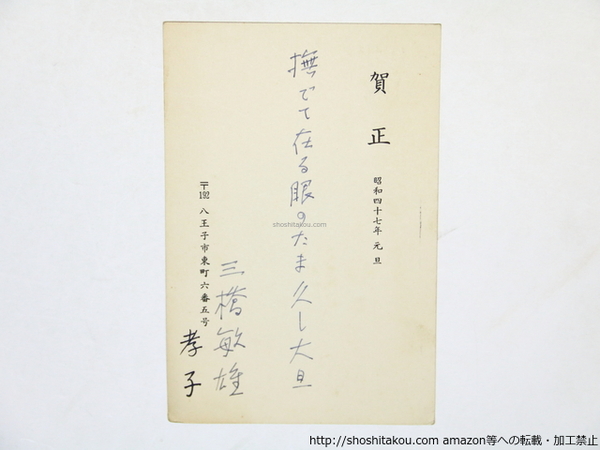 賀正
昭和四十七年 元旦
撫でて在る眼のたま久し大旦
〒192 八王子市東町六番五号
三橋敏雄
孝子
shoshitakou.com
http://shoshitakou.com amazon等への転載・加工禁止